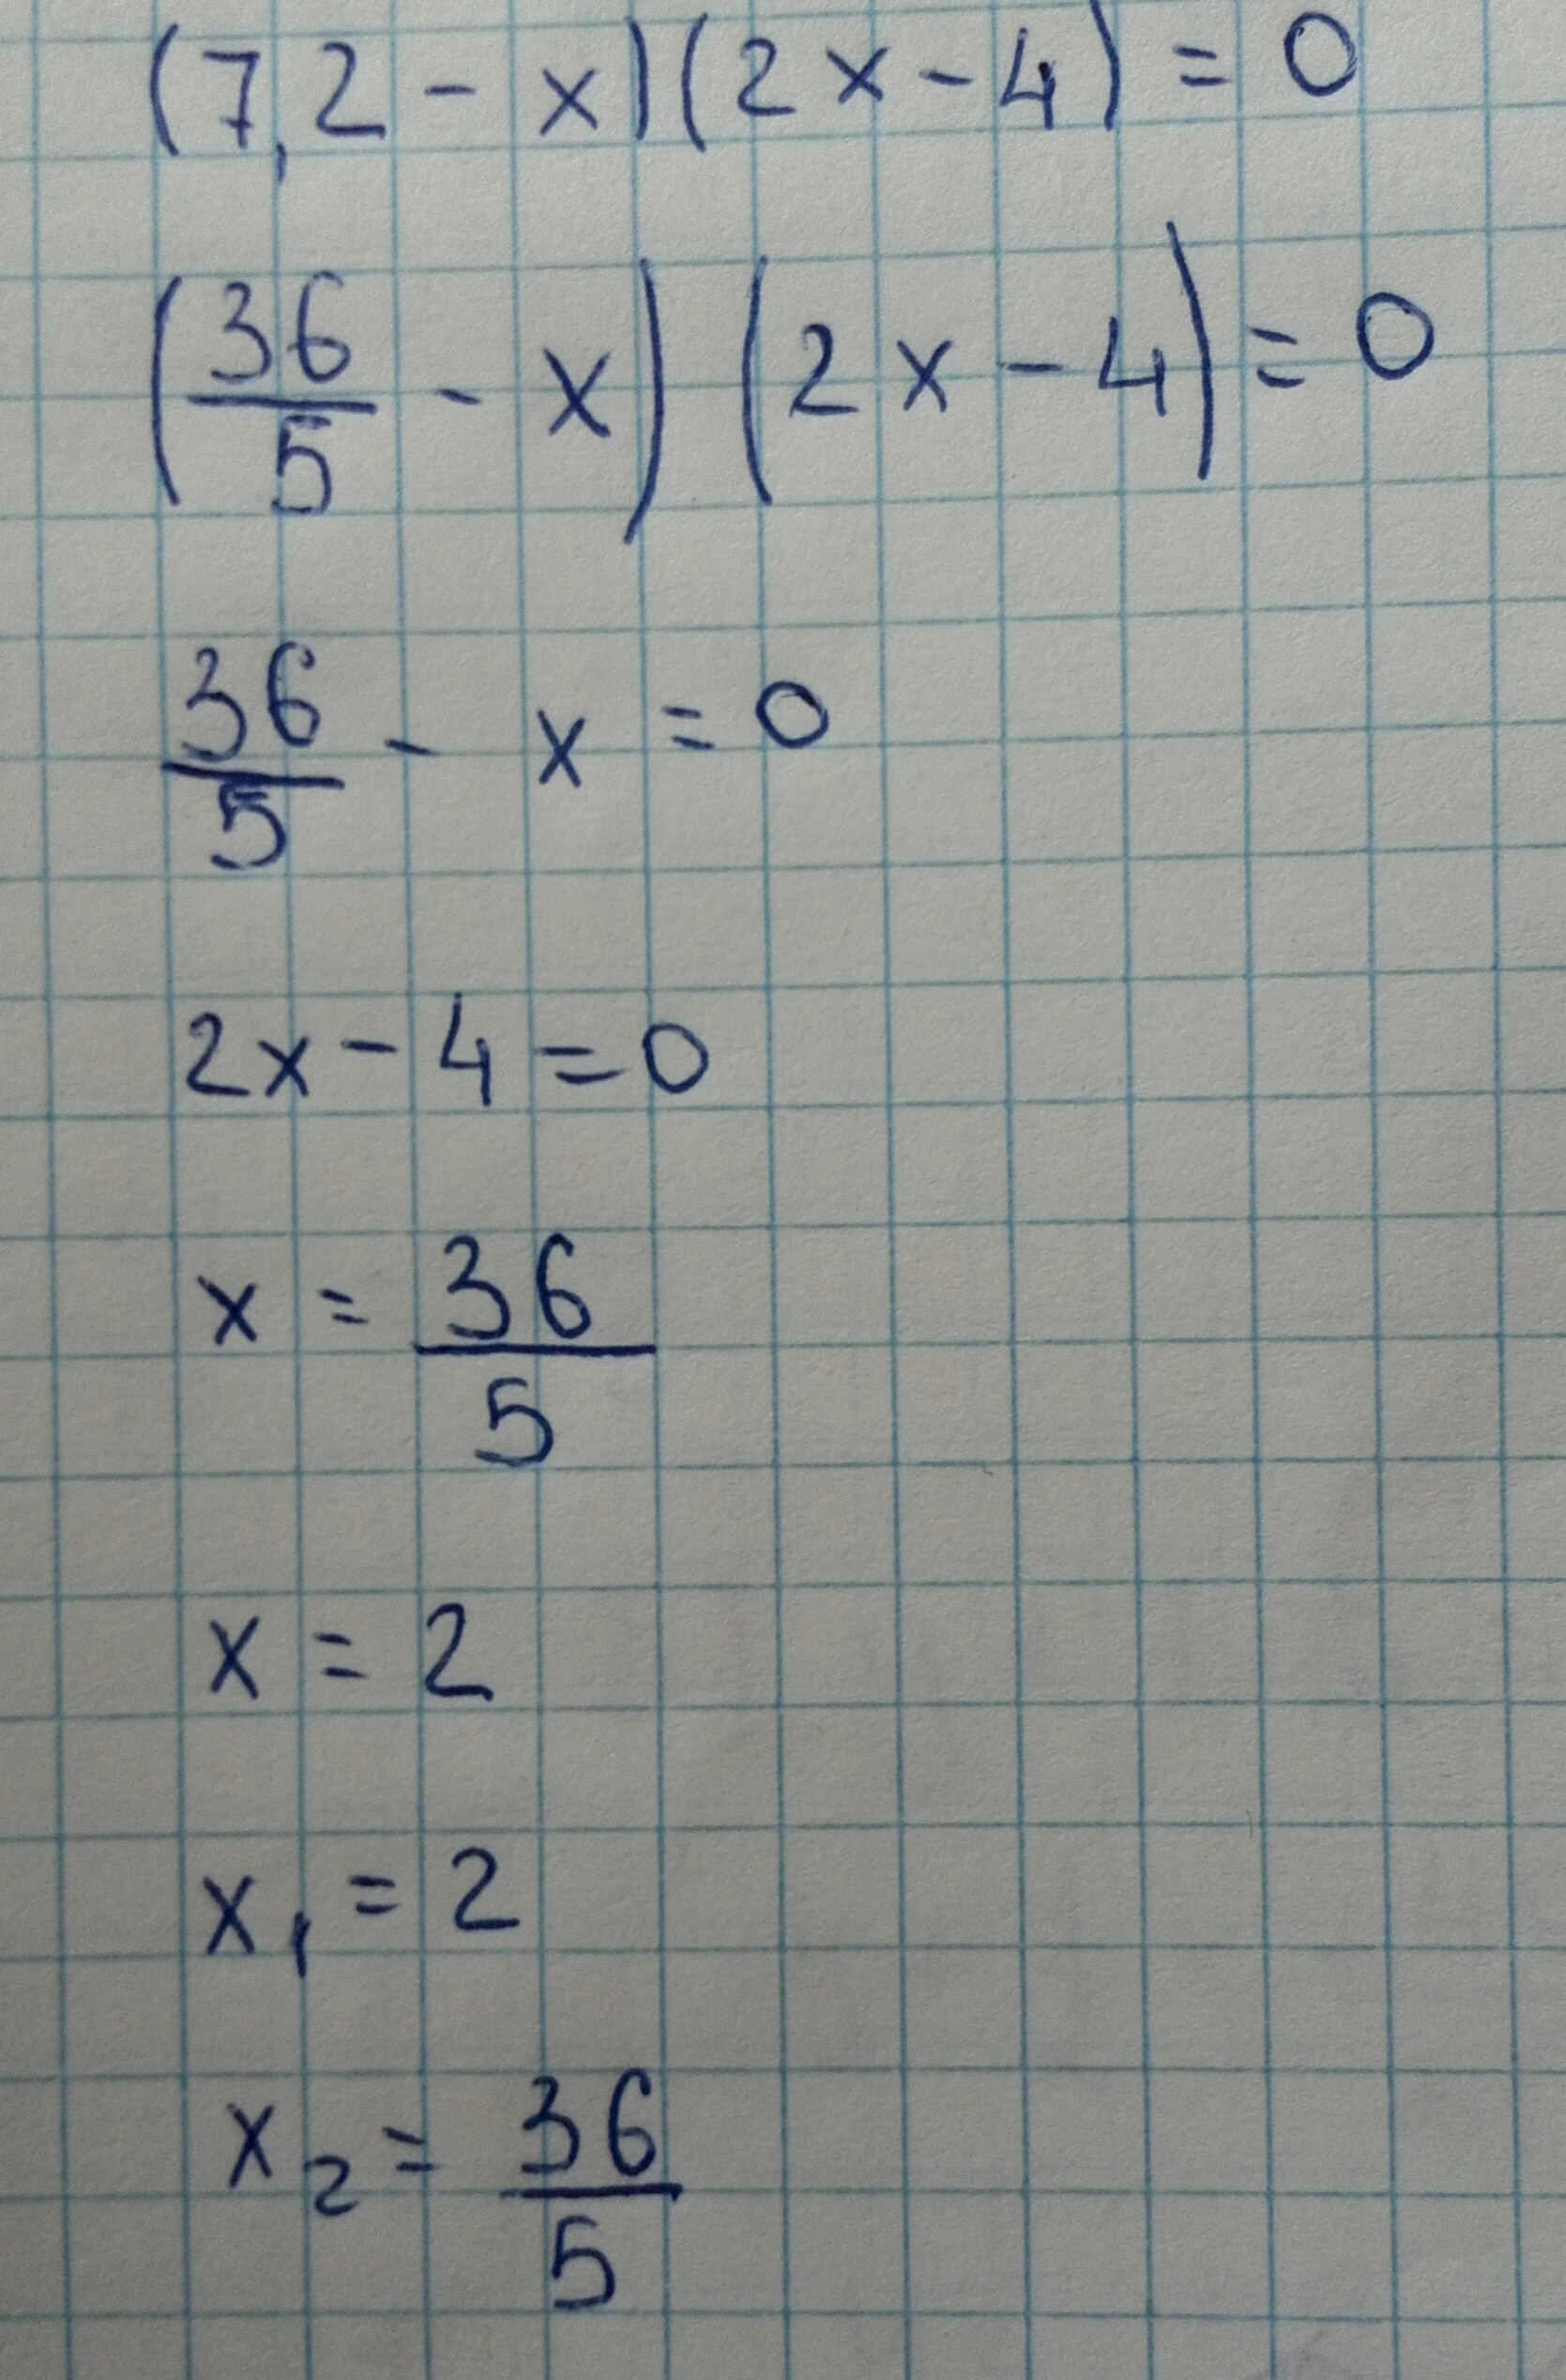 (7,2 - x)(2x - 4) = 0
(36/5 - x)(2x - 4) = 0
36/5 - x = 0
2x - 4 = 0
x = 36/5
x = 2
x₁ = 2
x₂ = 36/5